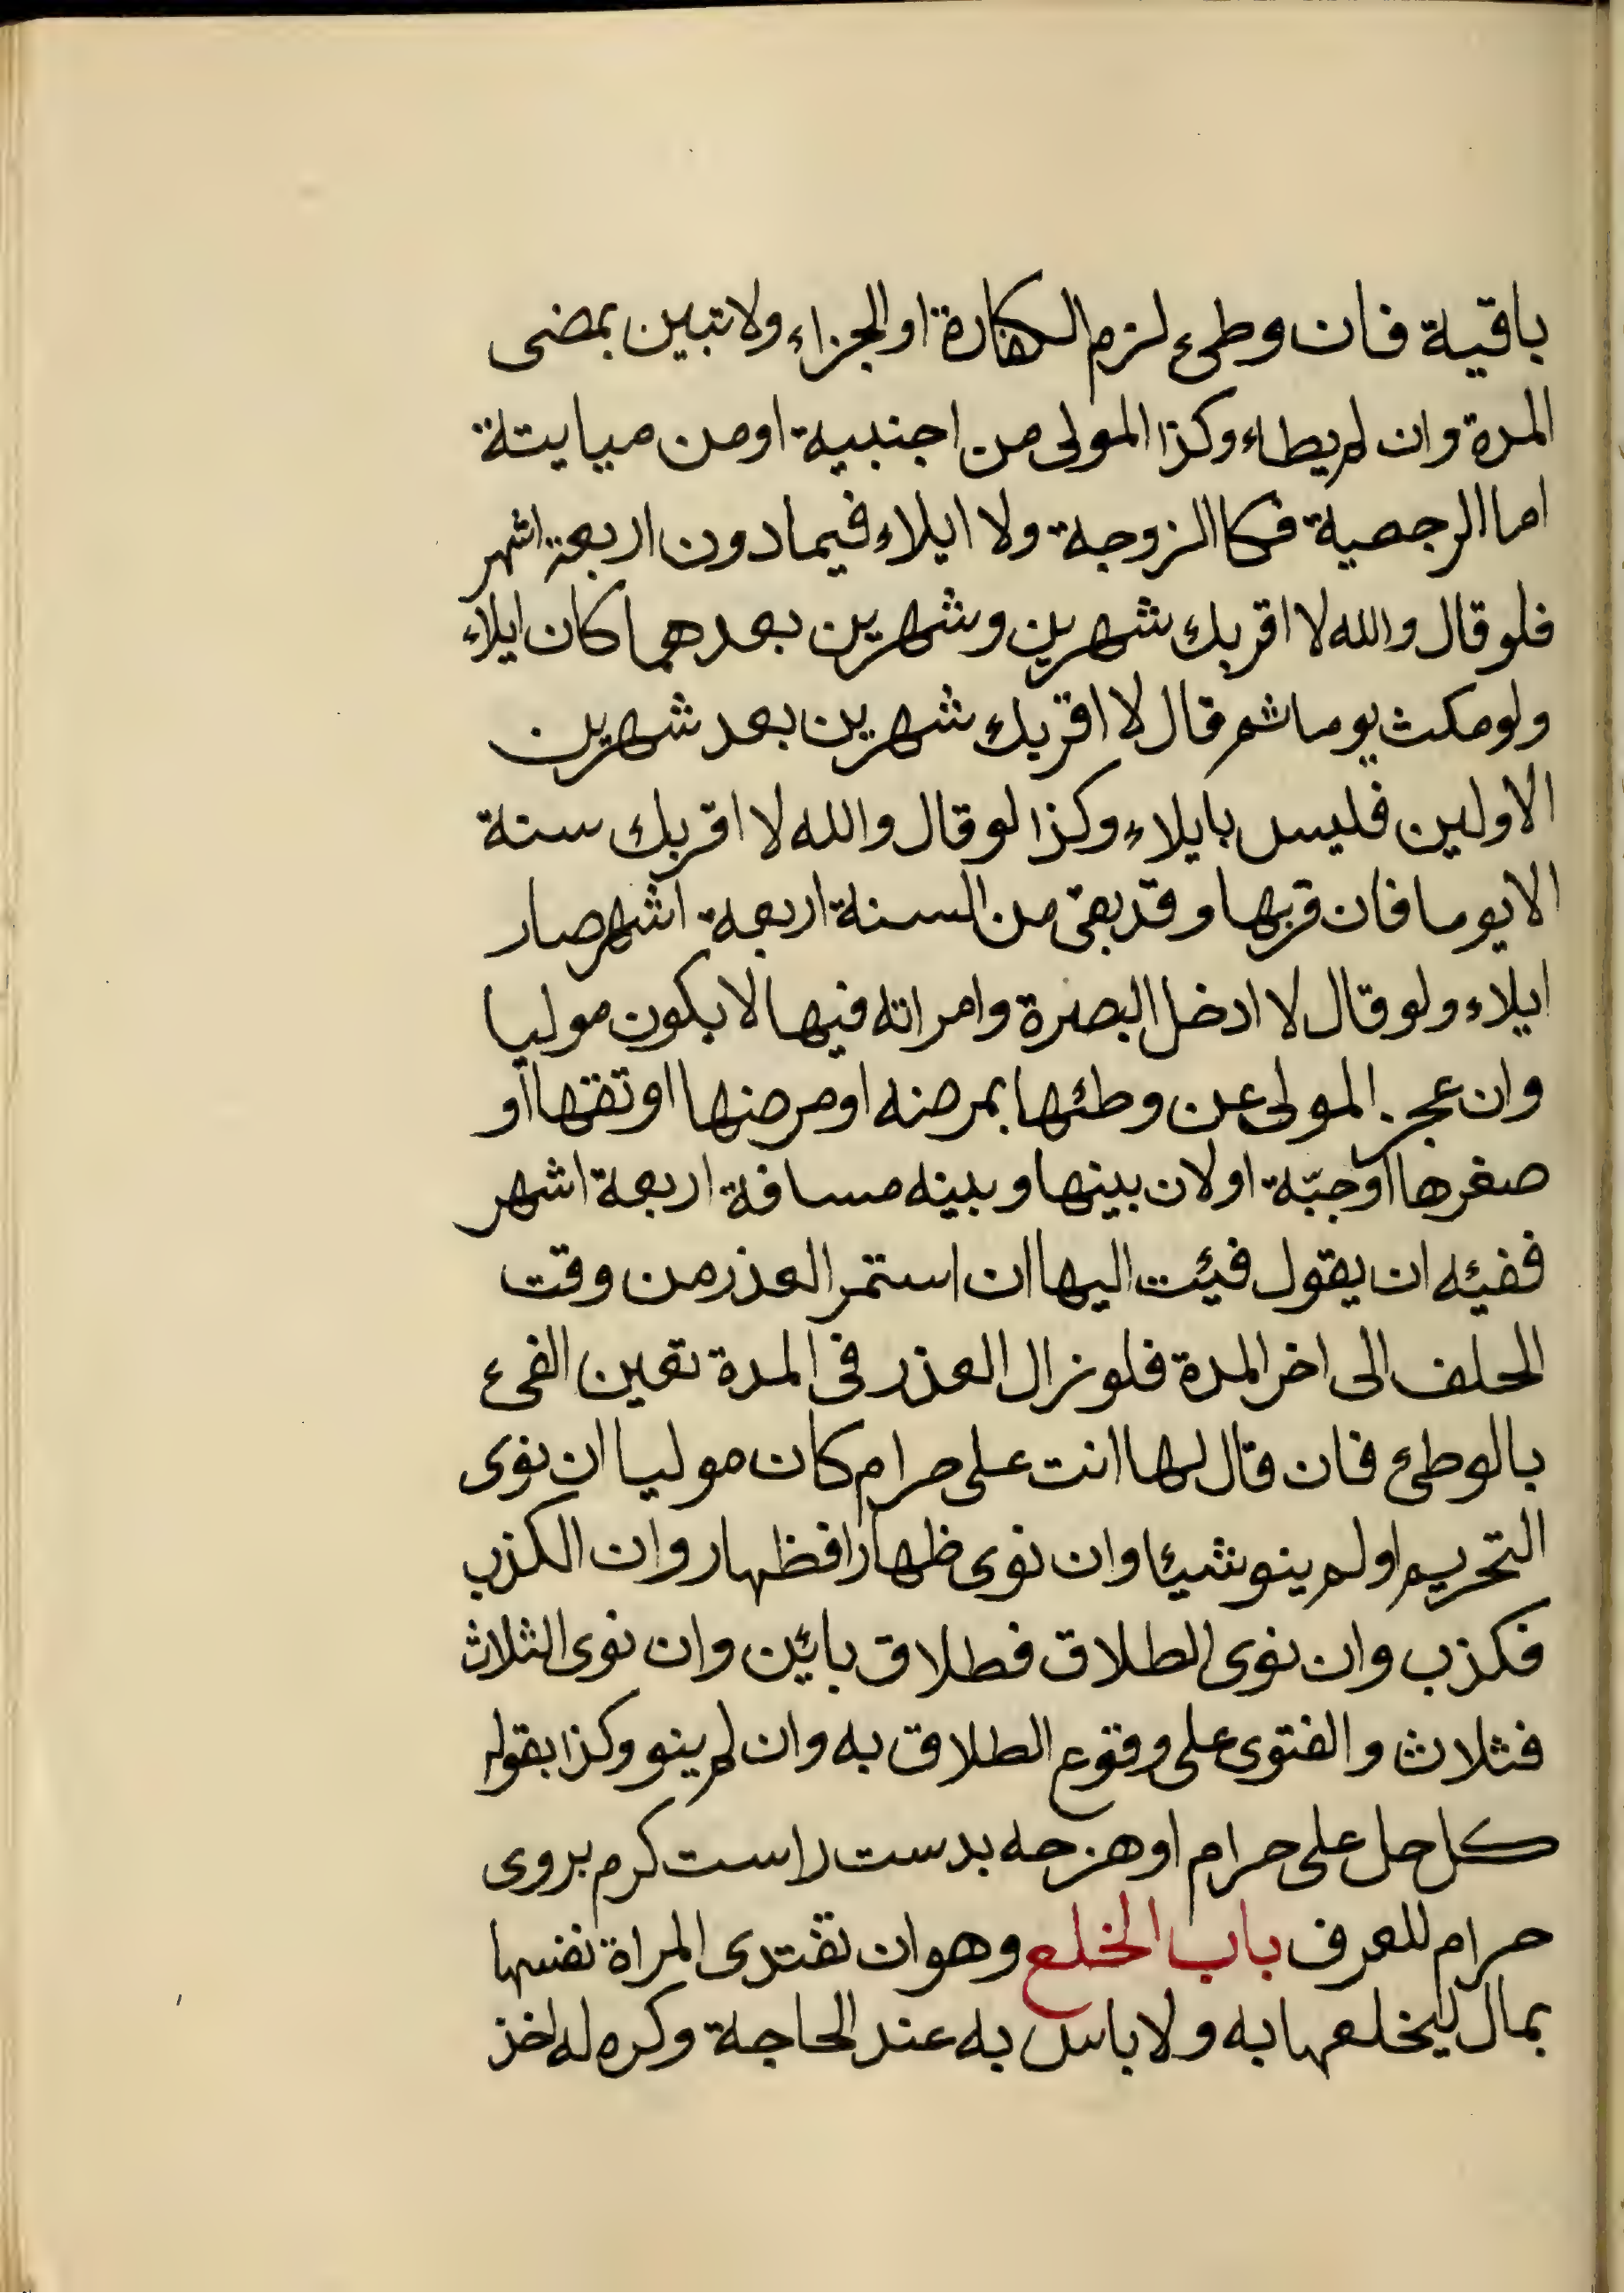 باقية فان وطئ لزم الكفارة او الجزاء ولا تبين بمضى
المدة وان لم يطاء وكذا المولى من اجنبية او من مبايتة
اما الرجعية فكا الزوجة ولا ايلاء فيما دون اربعة اشهر
فلو قال والله لا اقربك شهرين وشهرين بعدهما كان ايلاء
ولو مكث يوما ثم قال لا اقربك شهرين بعد شهرين
الاولين فليس بايلاء وكذا لو قال والله لا اقربك سنة
الا يوما فان قربها وقد بقى من السنة اربعة اشهر صار
ايلاء ولو قال لا ادخل البصرة وامراته فيها لا يكون موليا
وان عجز المولى عن وطئها بمرضه او مرضها او تقها او
صغرها او جبّة او لان بينها وبينه مسافة اربعة اشهر
ففيئه ان يقول فيئت اليها ان استمر العذر من وقت
الحلف الى اخر المدة فلو زال العذر فى المدة تعين الفىء
بالوطئ فان قال لها انت على حرام كان موليا ان نوى
التحريم او لم ينو شيئا وان نوى ظهارا فظهار وان الكذب
فكذب وان نوى الطلاق فطلاق بائين وان نوى الثلاث
فثلاث والفتوى على وقوع الطلاق به وان لم ينو وكذا بقوله
كل حل على حرام او هرجه بدست راست كرم بروى
حرام للعرف باب الخلع وهو ان تفتدى المراة نفسها
بمال ليخلعها به ولا باس به عند الحاجة وكره له اخذ